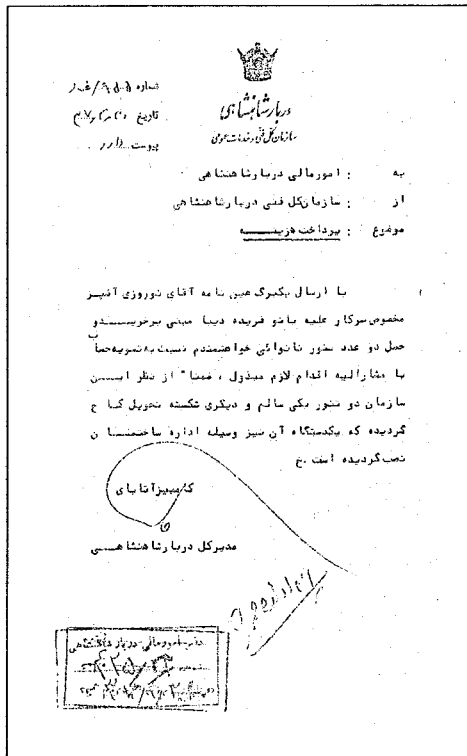 شماره
تاریخ
پیوست دارد
دربار شاهنشاهی
سازمان کل فنی و خدمات عمومی
به : امور مالی دربار شاهنشاهی
از : سازمان کل فنی دربار شاهنشاهی
موضوع : پرداخت هزینه
با ارسال یکبرگ عین نامه آقای نوروزی آشپز
مخصوص سرکار علیه بانو فریده دیبا مبنی برخرید و
حمل دو عدد تنور نانوائی خواهشمندم نسبت به تسویه حساب
با مشارالیه اقدام لازم مبذول ، ضمنا" از نظر این
سازمان دو تنور یکی سالم و دیگری شکسته تحویل کاخ
گردیده که یکدستگاه آن نیز وسیله اداره ساختمان
نصب گردیده است .خ
کامبیز آتابای
مدیرکل دربار شاهنشاهی
دفتر امور مالی دربار شاهنشاهی
شماره